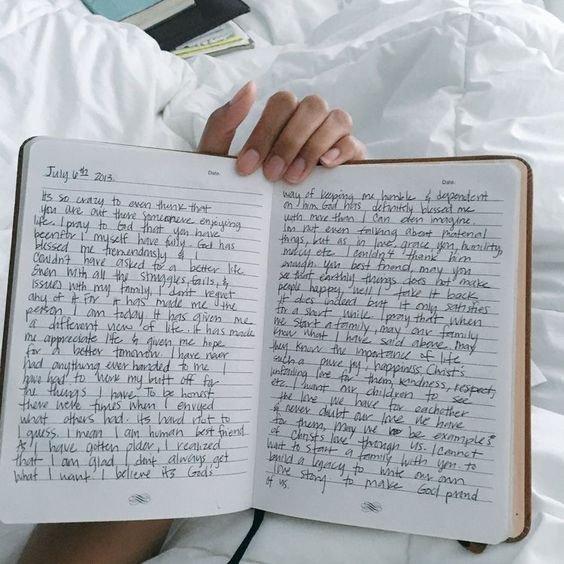 July 6th 2013.
Date:
Its so crazy to even think that
you are out there someone enjoying
life. I pray to God that you have
been for I myself have fully. God has
blessed me tremendously & I
couldn't have asked for a better life.
Even with all the struggles, fails, &
issues with my family, I don't regret
any of it for it has made me the
person I am today. It has given me
a different view of life. it has made
me appreciate life & given me hope
for a better tomorrow. I have never
had anything ever handed to me. I
have had to work my butt off for
the things I have. To be honest
there were times when I envyed
what others had. its hard not to
I guess. I mean I am human best friend
As I have gotten older, I realized
that I am glad I dont always get
what I want. I believe its God's
Date:
way of keeping me humble & dependent
on him. God has definitly blessed me
with more than I can even imagine.
I'm not even talking about material
things, but as in love, grace, you, humility,
mercy etc. I couldn't thank him
enough. You best friend, may you
see that earthly things does not make
people happy, well I take it back
it does indeed but it only satisfies
for a short while. I pray that when
we start a family, may our family
know what I have said above. may
they know the importance of life
such a pure joy, happiness, Christ's
unfailing love for them, kindness, respect,
etc. I want our children to see
the love we have for eachother
& never doubt our love we have
for them, may we be examples
of Christ's love through us. I cannot
wait to start a family with you. to
build a legacy. to write our own
love story to make God proud
of us.